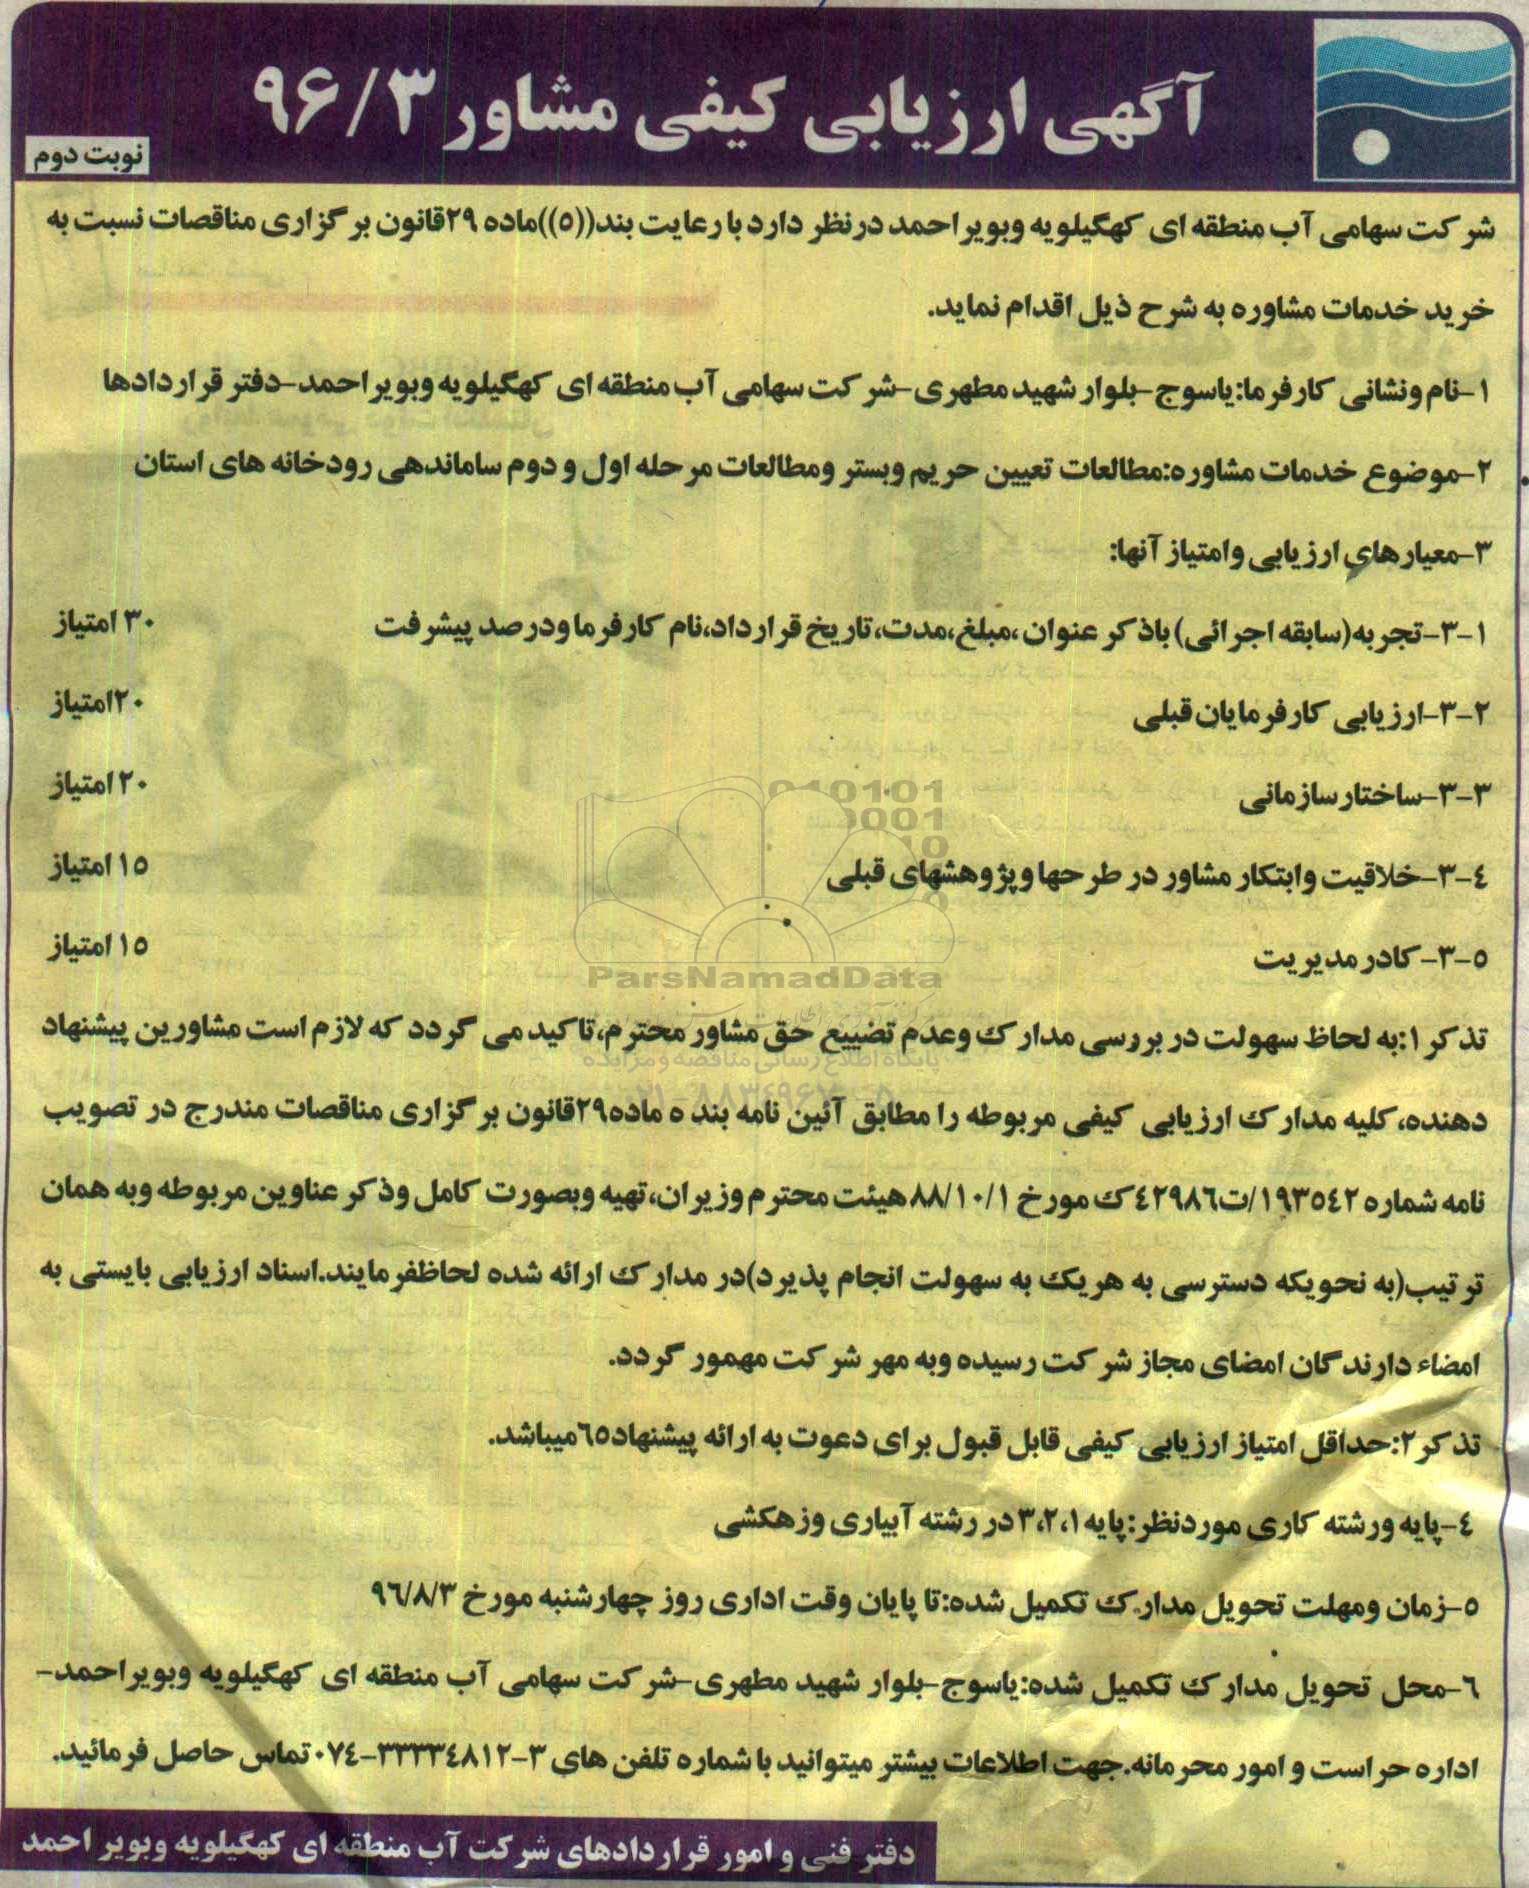 آگهی ارزیابی کیفی مشاور ۹۶/۳
نوبت دوم
شرکت سهامی آب منطقه ای کهگیلویه وبویراحمد درنظر دارد با رعایت بند((۵))ماده ۲۹قانون برگزاری مناقصات نسبت به
خرید خدمات مشاوره به شرح ذیل اقدام نماید.
۱-نام ونشانی کارفرما:یاسوج-بلوار شهید مطهری-شرکت سهامی آب منطقه ای کهگیلویه وبویراحمد-دفتر قراردادها
۲-موضوع خدمات مشاوره:مطالعات تعیین حریم وبستر ومطالعات مرحله اول و دوم ساماندهی رودخانه های استان
۳-معیارهای ارزیابی وامتیاز آنها:
۳-۱-تجربه(سابقه اجرائی)باذکر عنوان،مبلغ،مدت،تاریخ قرارداد،نام کارفرما ودرصد پیشرفت ۳۰ امتیاز
۳-۲-ارزیابی کارفرمایان قبلی ۲۰امتیاز
۳-۳-ساختارسازمانی ۲۰ امتیاز
۳-۴-خلاقیت وابتکار مشاور در طرحها وپژوهشهای قبلی ۱۵ امتیاز
۳-۵-کادرمدیریت ۱۵ امتیاز
010101
0001
ParsNamadData
تذکر۱:به لحاظ سهولت در بررسی مدارک وعدم تضییع حق مشاور محترم،تاکید می گردد که لازم است مشاورین پیشنهاد
پایگاه اطلاع رسانی مناقصه و مزایده
دهنده،کلیه مدارک ارزیابی کیفی مربوطه را مطابق آئین نامه بند ه ماده۲۹قانون برگزاری مناقصات مندرج در تصویب
نامه شماره ۱۹۳۵۴۲/ت۴۲۹۸۶ک مورخ ۸۸/۱۰/۱هیئت محترم وزیران،تهیه وبصورت کامل وذکر عناوین مربوطه وبه همان
ترتیب(به نحویکه دسترسی به هریک به سهولت انجام پذیرد)در مدارک ارائه شده لحاظفرمایند.اسناد ارزیابی بایستی به
امضاء دارندگان امضای مجاز شرکت رسیده وبه مهر شرکت مهمور گردد.
تذکر۲:حداقل امتیاز ارزیابی کیفی قابل قبول برای دعوت به ارائه پیشنهاد۶۵میباشد.
۴-پایه ورشته کاری موردنظر:پایه ۱،۲،۳در رشته آبیاری وزهکشی
۵-زمان ومهلت تحویل مدارک تکمیل شده:تا پایان وقت اداری روز چهارشنبه مورخ ۹۶/۸/۳
۶-محل تحویل مدارک تکمیل شده:یاسوج-بلوار شهید مطهری-شرکت سهامی آب منطقه ای کهگیلویه وبویراحمد-
اداره حراست و امور محرمانه.جهت اطلاعات بیشتر میتوانید با شماره تلفن های ۳-۳۳۳۳۴۸۱۲-۰۷۴تماس حاصل فرمائید.
دفتر فنی و امور قراردادهای شرکت آب منطقه ای کهگیلویه وبویر احمد